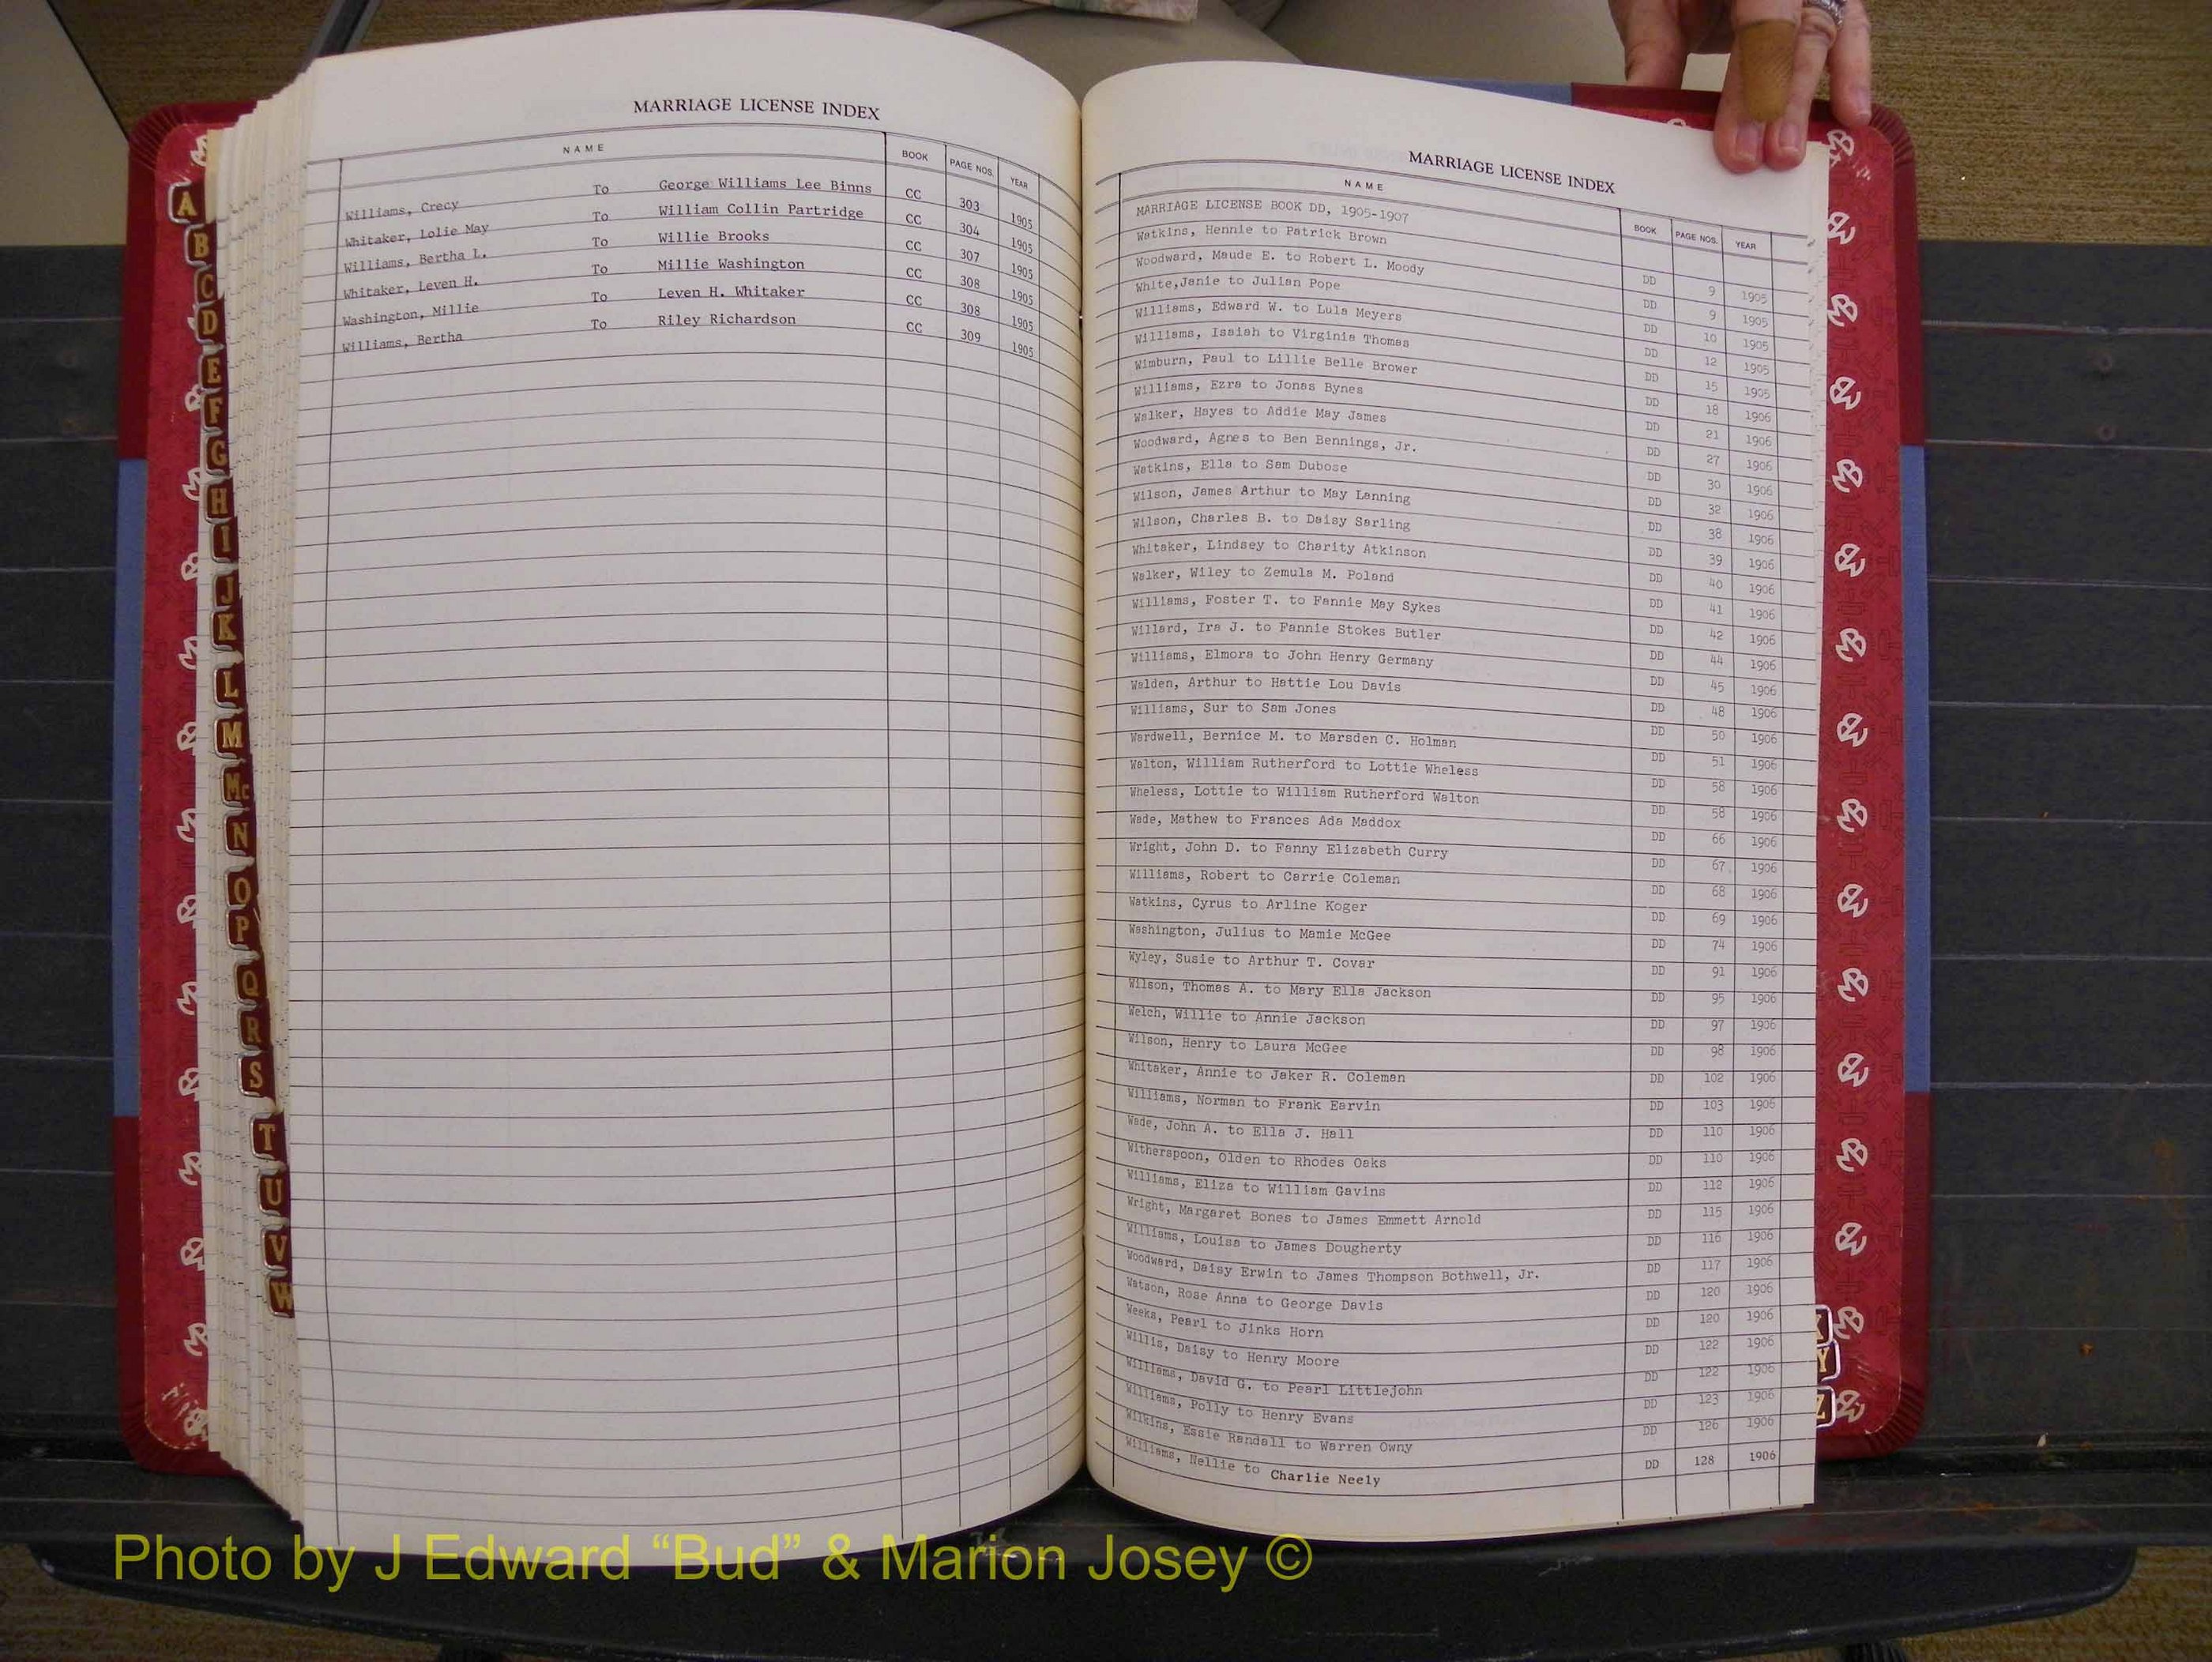 MARRIAGE LICENSE INDEX
NAME BOOK PAGE NOS. YEAR
Williams, Crecy To George Williams Lee Binns CC 303 1905
Whitaker, Lolie May To William Collin Partridge CC 304 1905
Williams, Bertha L. To Willie Brooks CC 307 1905
Whitaker, Leven H. To Millie Washington CC 308 1905
Washington, Millie To Leven H. Whitaker CC 308 1905
Williams, Bertha To Riley Richardson CC 309 1905
A
B
C
D
E
F
G
H
I
J
K
L
M
Mc
N
O
P
Q
R
S
T
U
V
W
MARRIAGE LICENSE INDEX
NAME BOOK PAGE NOS. YEAR
MARRIAGE LICENSE BOOK DD, 1905-1907
Watkins, Hennie to Patrick Brown DD 9 1905
Woodward, Maude E. to Robert L. Moody DD 9 1905
White,Janie to Julian Pope DD 10 1905
Williams, Edward W. to Lula Meyers DD 12 1905
Williams, Isaiah to Virginia Thomas DD 15 1905
Wimburn, Paul to Lillie Belle Brower DD 18 1906
Williams, Ezra to Jonas Bynes DD 21 1906
Walker, Hayes to Addie May James DD 27 1906
Woodward, Agnes to Ben Bennings, Jr. DD 30 1906
Watkins, Ella to Sam Dubose DD 32 1906
Wilson, James Arthur to May Lanning DD 38 1906
Wilson, Charles B. to Daisy Sarling DD 39 1906
Whitaker, Lindsey to Charity Atkinson DD 40 1906
Walker, Wiley to Zemula M. Poland DD 41 1906
Williams, Foster T. to Fannie May Sykes DD 42 1906
Willard, Ira J. to Fannie Stokes Butler DD 44 1906
Williams, Elmora to John Henry Germany DD 45 1906
Walden, Arthur to Hattie Lou Davis DD 48 1906
Williams, Sur to Sam Jones DD 50 1906
Wardwell, Bernice M. to Marsden C. Holman DD 51 1906
Walton, William Rutherford to Lottie Wheless DD 58 1906
Wheless, Lottie to William Rutherford Walton DD 58 1906
Wade, Mathew to Frances Ada Maddox DD 66 1906
Wright, John D. to Fanny Elizabeth Curry DD 67 1906
Williams, Robert to Carrie Coleman DD 68 1906
Watkins, Cyrus to Arline Koger DD 69 1906
Washington, Julius to Mamie McGee DD 74 1906
Wyley, Susie to Arthur T. Covar DD 91 1906
Wilson, Thomas A. to Mary Ella Jackson DD 95 1906
Welch, Willie to Annie Jackson DD 97 1906
Wilson, Henry to Laura McGee DD 98 1906
Whitaker, Annie to Jaker R. Coleman DD 102 1906
Williams, Norman to Frank Earvin DD 103 1906
Wade, John A. to Ella J. Hall DD 110 1906
Witherspoon, Olden to Rhodes Oaks DD 110 1906
Williams, Eliza to William Gavins DD 112 1906
Wright, Margaret Bones to James Emmett Arnold DD 115 1906
Williams, Louisa to James Dougherty DD 116 1906
Woodward, Daisy Erwin to James Thompson Bothwell, Jr. DD 117 1906
Watson, Rose Anna to George Davis DD 120 1906
Weeks, Pearl to Jinks Horn DD 120 1906
Willis, Daisy to Henry Moore DD 122 1906
Williams, David G. to Pearl Littlejohn DD 122 1906
Williams, Polly to Henry Evans DD 123 1906
Wilkins, Essie Randall to Warren Owny DD 126 1906
Williams, Nellie to Charlie Neely DD 128 1906
Y
Z
Photo by J Edward “Bud” & Marion Josey ©